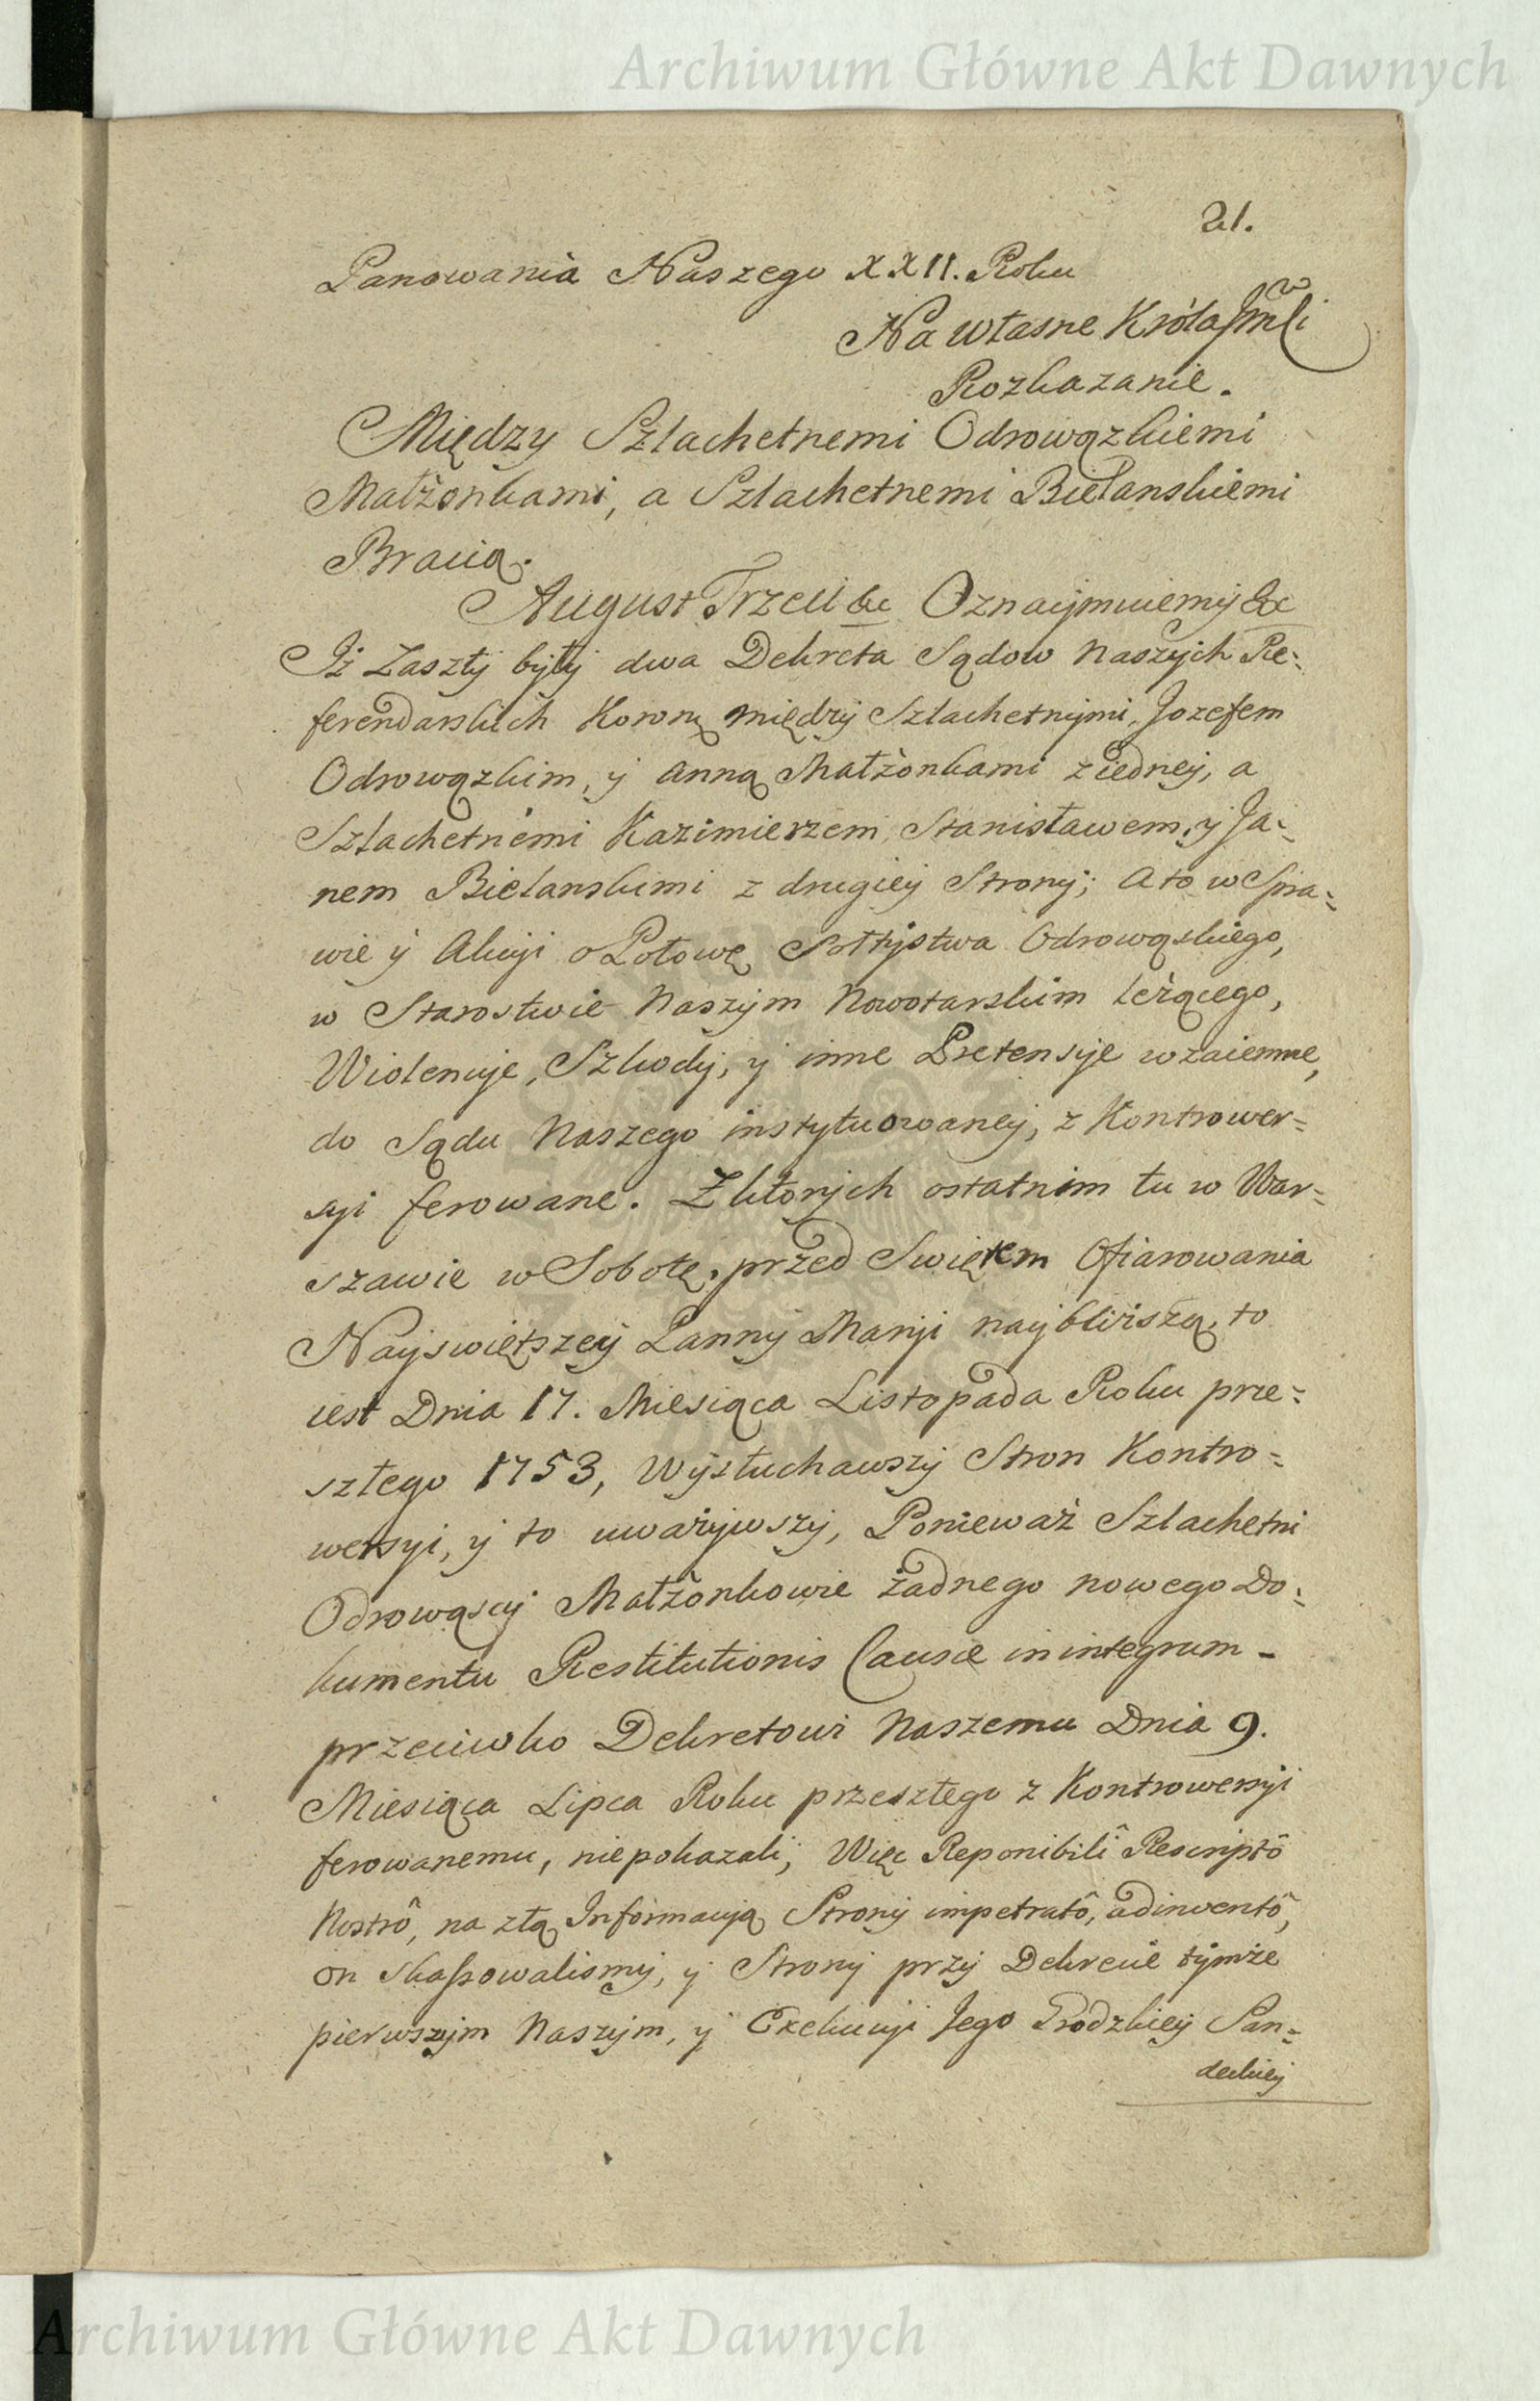 Archiwum Główne Akt Dawnych
21.
Panowania Naszego XXII. Roku
Na własne Króla Jmci
Rozkazanie.
Między Szlachetnemi Odrowązkiemi
Małżonkami, a Szlachetnemi Bielanskiemi
Bracią.
August Trzeci &c Oznaymuiemy &c
Iż Zaszły były dwa Dekreta Sądow Naszych Re=
ferendarskich Koronę między Szlachetnymi, Jozefem
Odrowązkim, y Anną Małżonkami z iedney, a
Szlachetnemi Kazimierzem, Stanisławem, y Ja=
nem Bielanskimi z drugiey Strony; A to w Spra=
wie y Akcyi o Połowę Sołtystwa Odrowąskiego,
w Starostwie Naszym Nowotarskim leżącego,
Wiolencye, Szkody, y inne Pretensye wzaiemne,
do Sądu Naszego instytuowaney, z Kontrower=
syi ferowane. Z ktorych ostatnim tu w War=
szawie w Sobotę, przed Swiętem Ofiarowania
Nayswiętszey Panny Maryi nayblizszą, to
iest Dnia 17. Miesiąca Listopada Roku prze=
szłego 1753, Wysłuchawszy Stron Kontro=
wersyi, y to uważywszy, Ponieważ Szlachetni
Odrowąscy Małżonkowie żadnego nowego Do=
kumentu Restitutionis Causæ in integrum -
przeciwko Dekretowi Naszemu Dnia 9.
Miesiąca Lipca Roku przeszłego z Kontrowersyi
ferowanemu, niepokazali; Więc Reponibili Rescriptô
Nostrô, na złą Informacyą Strony impetratô, adinventô,
on skassowalismy, y Strony przy Dekrecie tymże
pierwszym Naszym, y Exekucyi Jego Grodzkiey San=
deckiey
Archiwum Główne Akt Dawnych